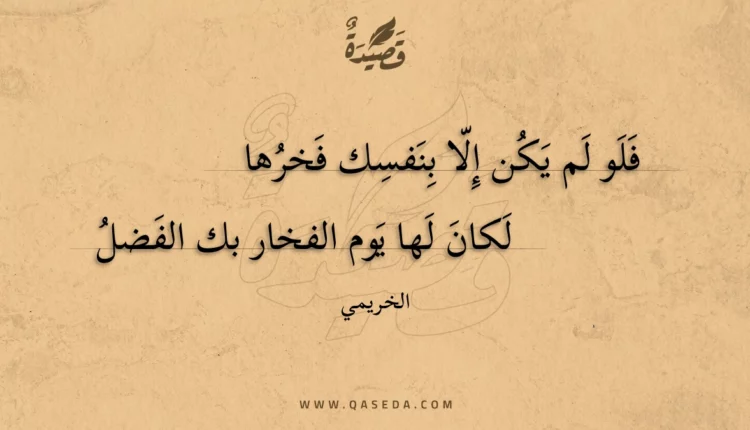 قَصِيْدَةٌ
فَلَو لَم يَكُن إِلّا بِنَفسِك فَخرُها
لَكانَ لَها يَوم الفخار بك الفَضلُ
الخريمي
WWW.QASEDA.COM